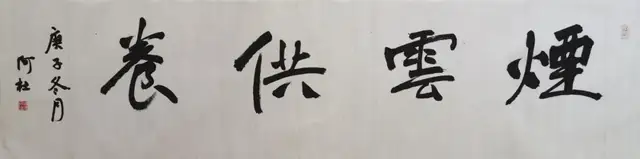 煙雲供養
庚子冬月
阿杜